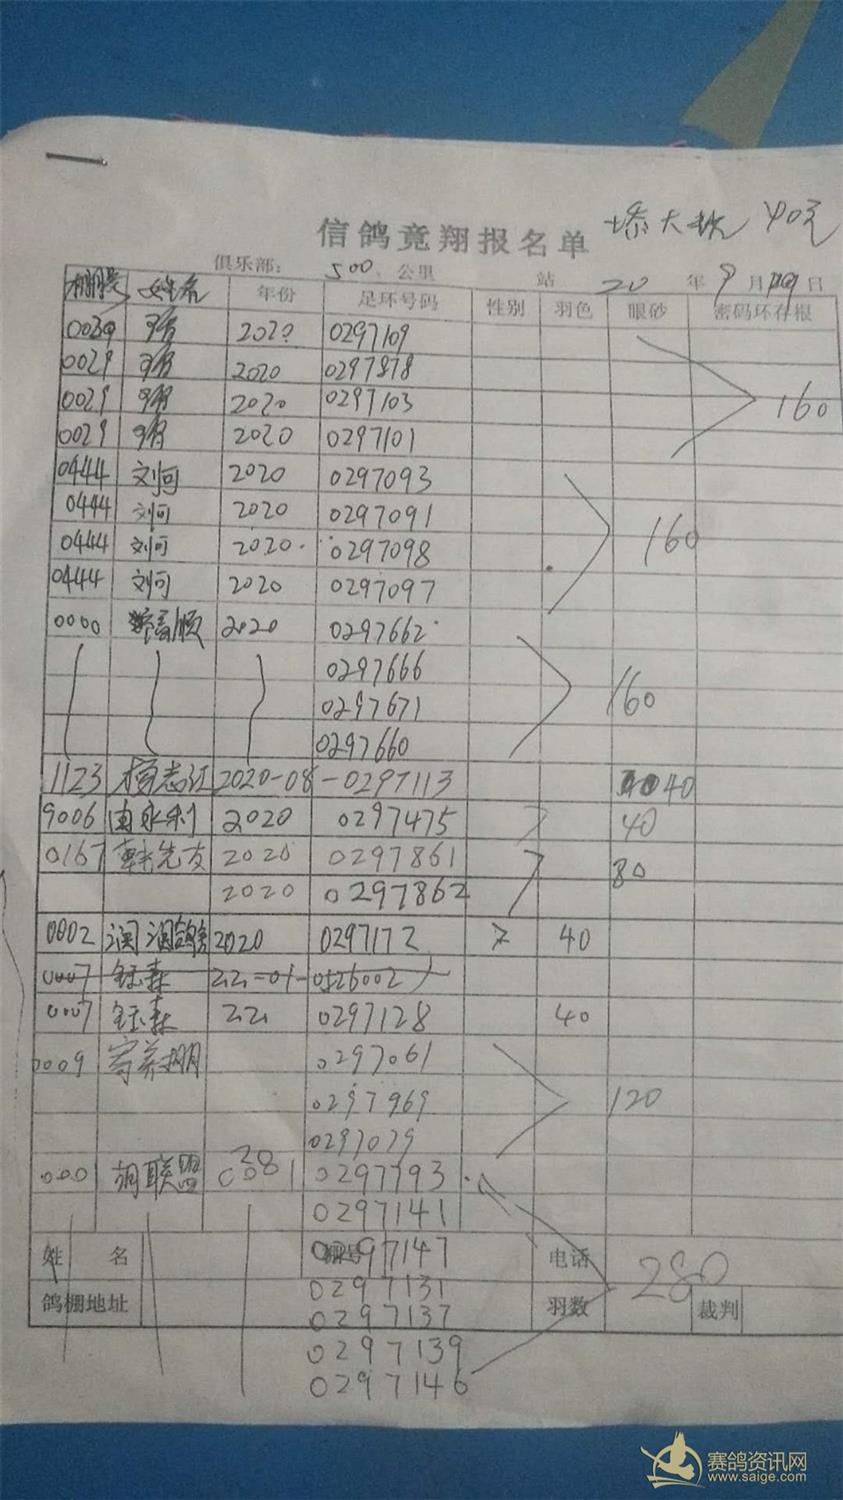 信鸽竞翔报名单 大 40元
俱乐部: 500 公里 站 20 年 9 月 19 日
棚号 姓名 年份 足环号码 性别 羽色 眼砂 密码环存根
0029 2020 0297109
0029 2020 0297878
0029 2020 0297103 160
0029 2020 0297101
0444 刘可 2020 0297093
0444 刘可 2020 0297091
0444 刘可 2020 0297098 160
0444 刘可 2020 0297097
0000 顺 2020 0297662
0297666
0297671 160
0297660
1123 杨志江 2020-08-0297113 40
9006 由永利 2020 0297475 40
0167 韩先友 2020 0297861 80
2020 0297862
0002 润润鸽舍 2020 0297172 40
0007 钰森 22-01-0526002
0007 钰森 22 0297128 40
0009 寄养棚 0297061
0297969 120
0297079
000 胡联盟 0297793
0297141
姓 名 0297147 电话
鸽棚地址 0297131 羽数 280 裁判
0297137
0297139
0297146
赛鸽资讯网
www.saige.com